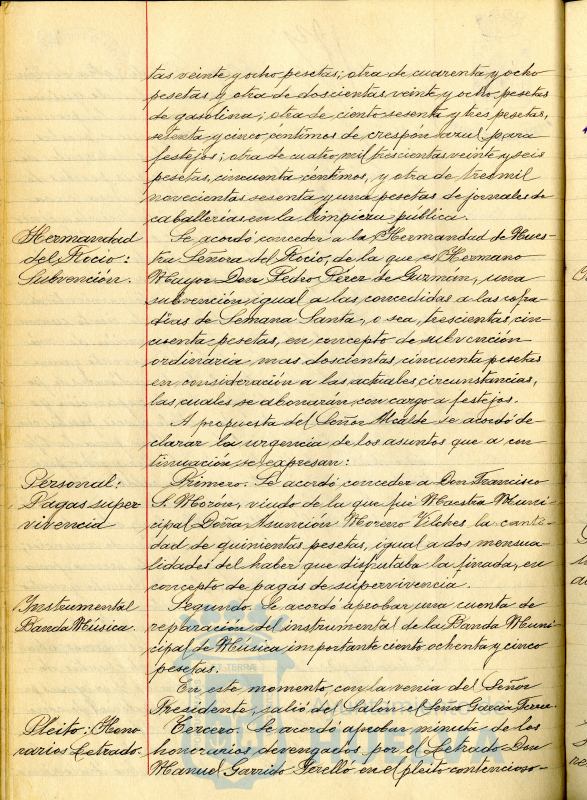 tas veinte y ocho pesetas; otra de cuarenta y ocho
pesetas y otra de doscientas veinte y ocho pesetas
de gasolina; otra de ciento sesenta y tres pesetas,
setenta y cinco céntimos de crespón azul para
festejos; otra de cuatro mil trescientas veinte y seis
pesetas, cincuenta céntimos, y otra de tres mil
novecientas sesenta y una pesetas de jornales de
caballerías en la limpieza pública.
Hermandad
del Rocío:
Subvención.
Se acordó conceder a la Hermandad de Nues-
tra Señora del Rocío, de la que es Hermano
Mayor Don Pedro Pérez de Guzmán, una
subvención, igual a las concedidas a las cofra-
días de Semana Santa, o sea, trescientas cin-
cuenta pesetas, en concepto de subvención
ordinaria, mas doscientas cincuenta pesetas
en consideración a las actuales circunstancias,
las cuales se abonarán con cargo a festejos.
A propuesta del Señor Alcalde se acordó de-
clarar la urgencia de los asuntos que a con-
tinuación se expresan:
Personal:
Pagas super-
vivencia
Primero. Se acordó conceder a Don Francisco
S. Morón, viudo de la que fué Maestra Muni-
cipal Doña Asunción Moreno Vilches la canti-
dad de quinientas pesetas, igual a dos mensua-
lidades del haber que disfrutaba la finada, en
concepto de pagas de supervivencia.
Instrumental
Banda Música.
Segundo. Se acordó aprobar una cuenta de
reparación del instrumental de la Banda Muni-
cipal de Música importante ciento ochenta y cinco
pesetas.
En este momento, con la venia del Señor
Presidente, salió del Salón el Señor García
Pleito: Hono-
rarios Letrado.
Tercero. Se acordó aprobar minuta de los
honorarios devengados por el Letrado Don
Manuel Garrido Perelló en el pleito contencioso-